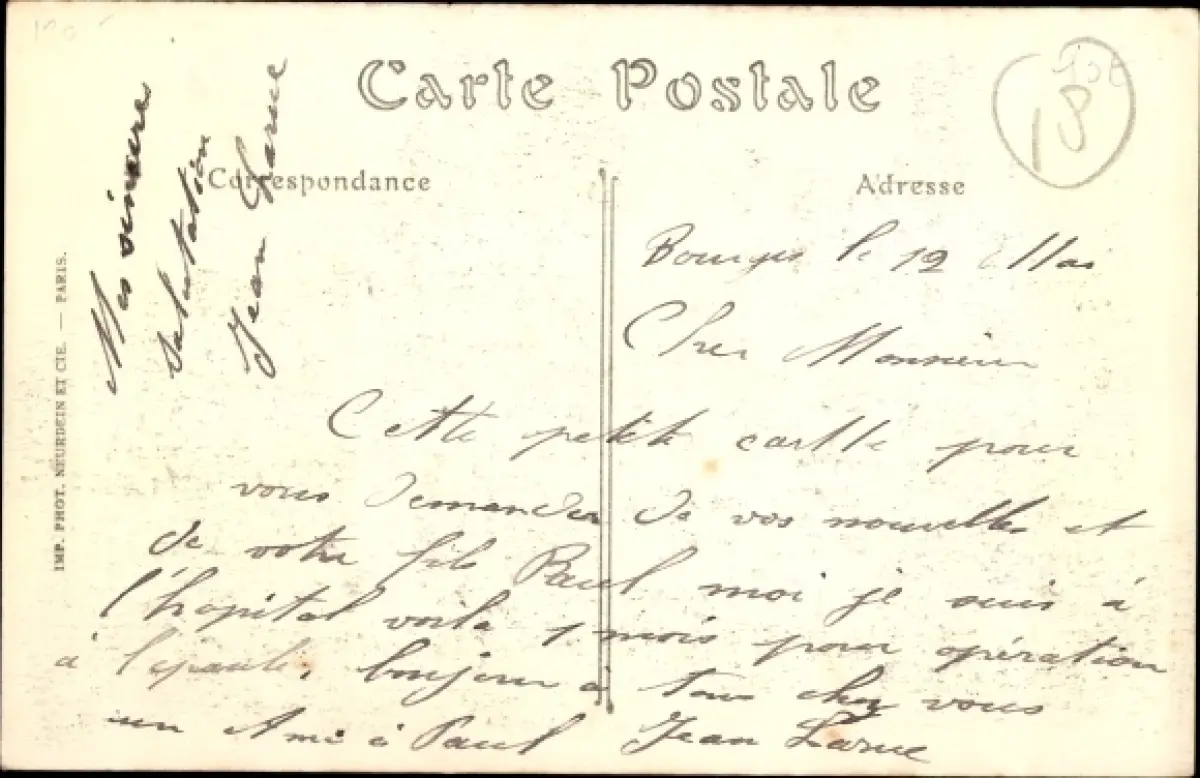 Carte Postale
Correspondance
Adresse
18
IMP. PHOT. NEURDEIN ET CIE. — PARIS.
Mes sincères
Salutation
Jean Larue
Bourges le 12 Mai
Cher Monsieur
Cette petite cartte pour
vous demander de vos nouvelles et
de votre fils Paul moi je suis à
l'hopital voila 1 mois pour opération
à l'epaule. bonjour à tous chez vous
un Ami à Paul Jean Larue